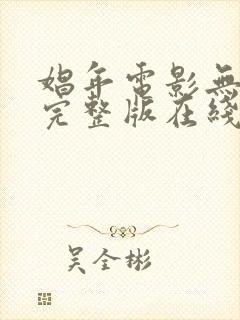 娼年電影無
完整版在綫
吴全彬